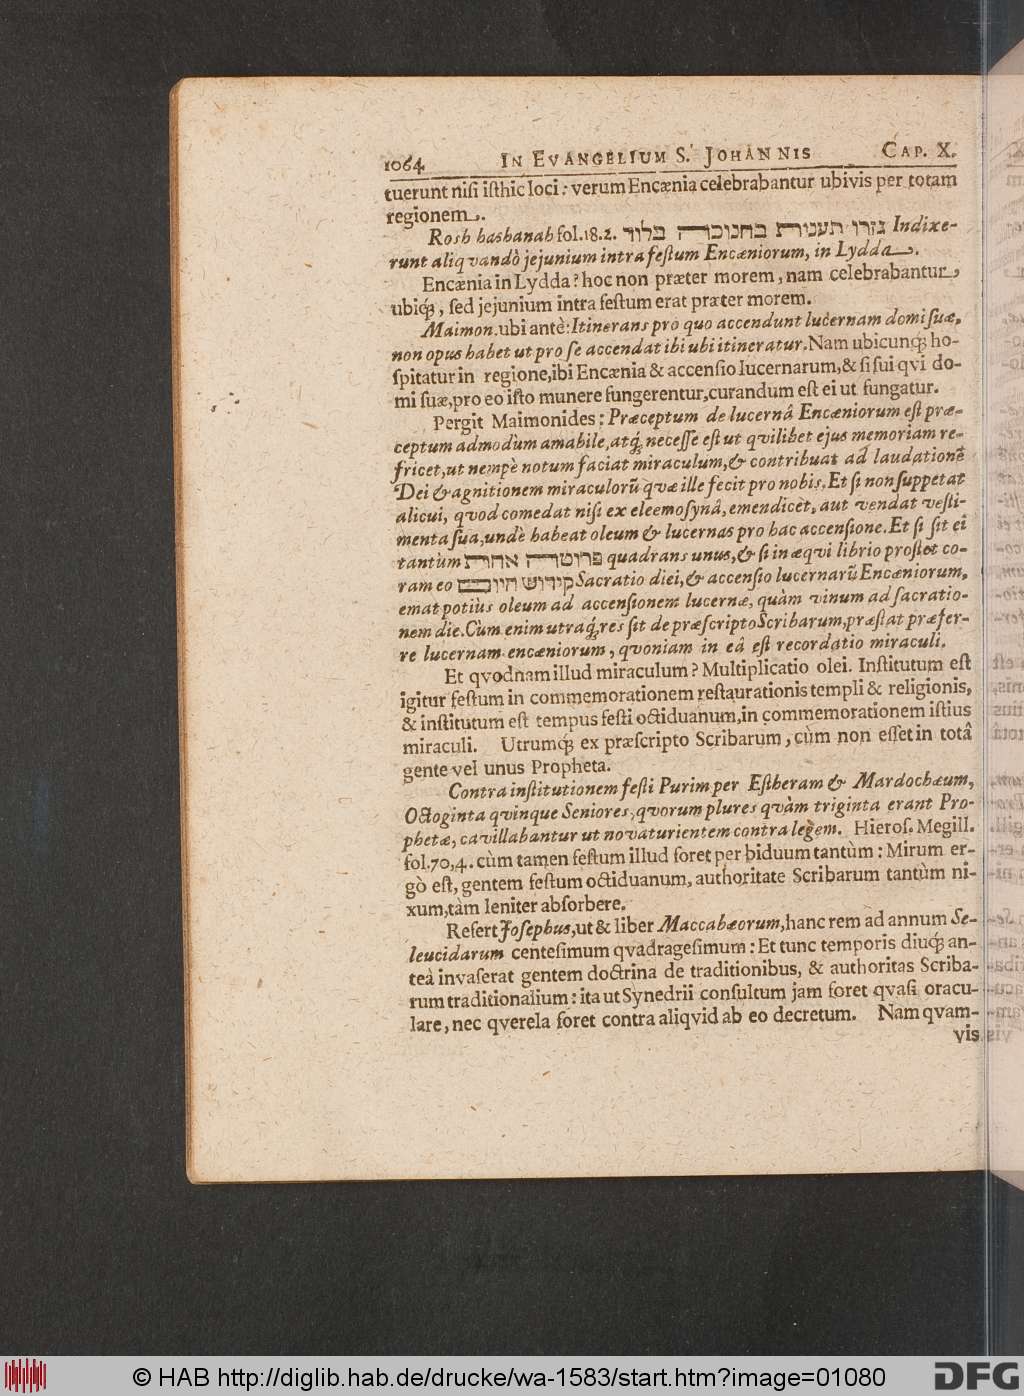 1064 IN EVANGELIUM S. JOHANNIS CAP. X.
tuerunt nisi isthic loci: verum Encænia celebrabantur ubivis per totam
regionem.
Rosh hashanah fol. 18. 2. גזרו תענית בחנוכה בלוד Indixe-
runt aliqvandò jejunium intra festum Encæniorum, in Lydda.
Encænia in Lydda? hoc non præter morem, nam celebrabantur
ubiq́;, sed jejunium intra festum erat præter morem.
Maimon. ubi antè: Itinerans pro quo accendunt lucernam domi suæ,
non opus habet ut pro se accendat ibi ubi itineratur. Nam ubicunq́; ho-
spitatur in regione, ibi Encænia & accensio lucernarum, & si sui qvi do-
mi suæ, pro eo isto munere fungerentur, curandum est ei ut fungatur.
Pergit Maimonides: Præceptum de lucernâ Encæniorum est præ-
ceptum admodùm amabile, atq́; necesse est ut qvilibet ejus memoriam re-
fricet, ut nempè notum faciat miraculum, & contribuat ad laudationē
Dei & agnitionem miraculorũ qvæ ille fecit pro nobis. Et si non suppetat
alicui, qvod comedat nisi ex eleemosynâ, emendicet, aut vendat vesti-
menta sua, undè habeat oleum & lucernas pro hac accensione. Et si sit ei
tantùm פרוטה אחרת quadrans unus, & si in æqvilibrio prostet co-
ram eo קידוש היום Sacratio diei, & accensio lucernarũ Encæniorum,
emat potiùs oleum ad accensionem lucernæ, quàm vinum ad sacratio-
nem die. Cùm enim utraq́; res sit de præscripto Scribarum, præstat præfer-
re lucernam encæniorum, qvoniam in eâ est recordatio miraculi.
Et qvodnam illud miraculum? Multiplicatio olei. Institutum est
igitur festum in commemorationem restaurationis templi & religionis,
& institutum est tempus festi octiduanum, in commemorationem istius
miraculi. Utrumq́; ex præscripto Scribarum, cùm non esset in totâ
gente vel unus Propheta.
Contra institutionem festi Purim per Estheram & Mardochæum,
Octoginta qvinque Seniores, qvorum plures qvàm triginta erant Pro-
phetæ, cavillabantur ut novaturientem contra legem. Hieros. Megill.
fol. 70, 4. cùm tamen festum illud foret per biduum tantùm: Mirum er-
gò est, gentem festum octiduanum, authoritate Scribarum tantùm ni-
xum, tàm leniter absorbere.
Refert Josephus, ut & liber Maccabæorum, hanc rem ad annum Se-
leucidarum centesimum qvadragesimum: Et tunc temporis diuq́; an-
teà invaserat gentem doctrina de traditionibus, & authoritas Scriba-
rum traditionalium: ita ut Synedrii consultum jam foret qvasi oracu-
lare, nec qverela foret contra aliqvid ab eo decretum. Nam qvam-
vis
© HAB http://diglib.hab.de/drucke/wa-1583/start.htm?image=01080
DFG